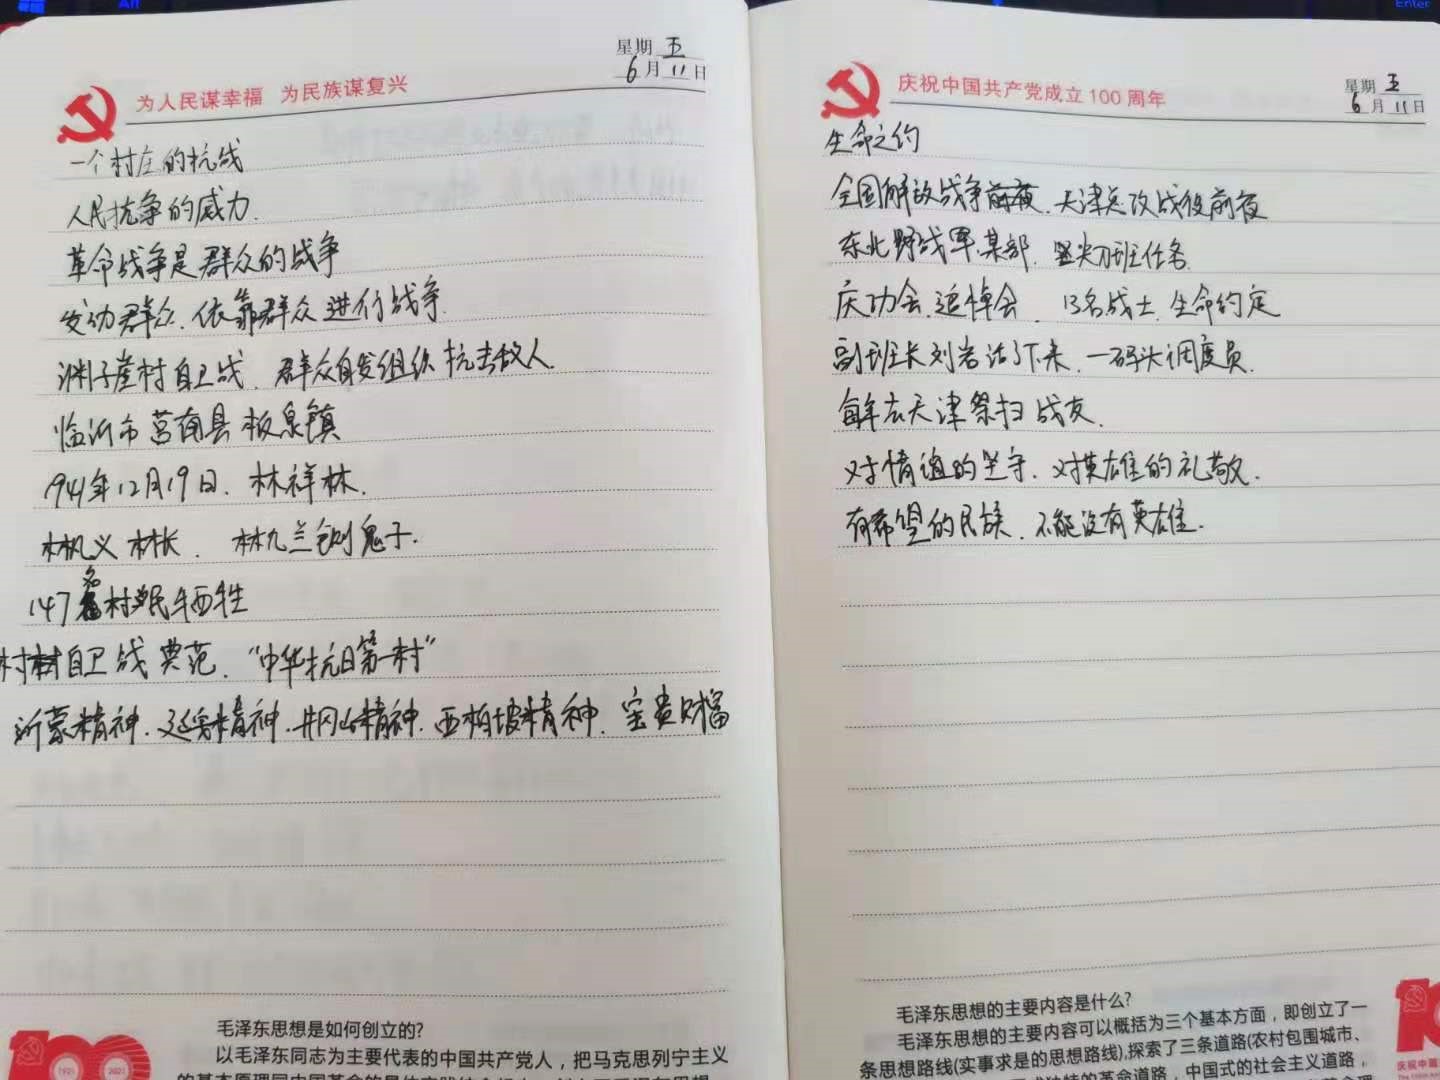 Alt
Enter
星期 五
6 月 11 日
为人民谋幸福 为民族谋复兴
一个村庄的抗战
人民抗争的威力.
革命战争是群众的战争
发动群众.依靠群众进行战争.
渊子崖村自卫战.群众自发组织抗击敌人.
临沂市莒南县板泉镇
1941年12月19日.林祥林.
林凡义 村长. 林九兰铡鬼子.
147名村民牺牲
村自卫战典范.“中华抗日第一村”
沂蒙精神.延安精神.井冈山精神.西柏坡精神.宝贵财富
毛泽东思想是如何创立的?
以毛泽东同志为主要代表的中国共产党人，把马克思列宁主义
1921 2021
星期 五
6 月 11 日
庆祝中国共产党成立100周年
生命之约
全国解放战争前夜.天津总攻战役前夜
东北野战军某部.尖刀班任务.
庆功会.追悼会.13名战士.生命约定
副班长刘岩活了下来.一码头调度员.
每年去天津祭扫战友.
对情谊的坚守.对英雄的礼敬.
有希望的民族.不能没有英雄.
毛泽东思想的主要内容是什么?
毛泽东思想的主要内容可以概括为三个基本方面，即创立了一
条思想路线(实事求是的思想路线),探索了三条道路(农村包围城市、
的革命道路，中国式的社会主义道路，